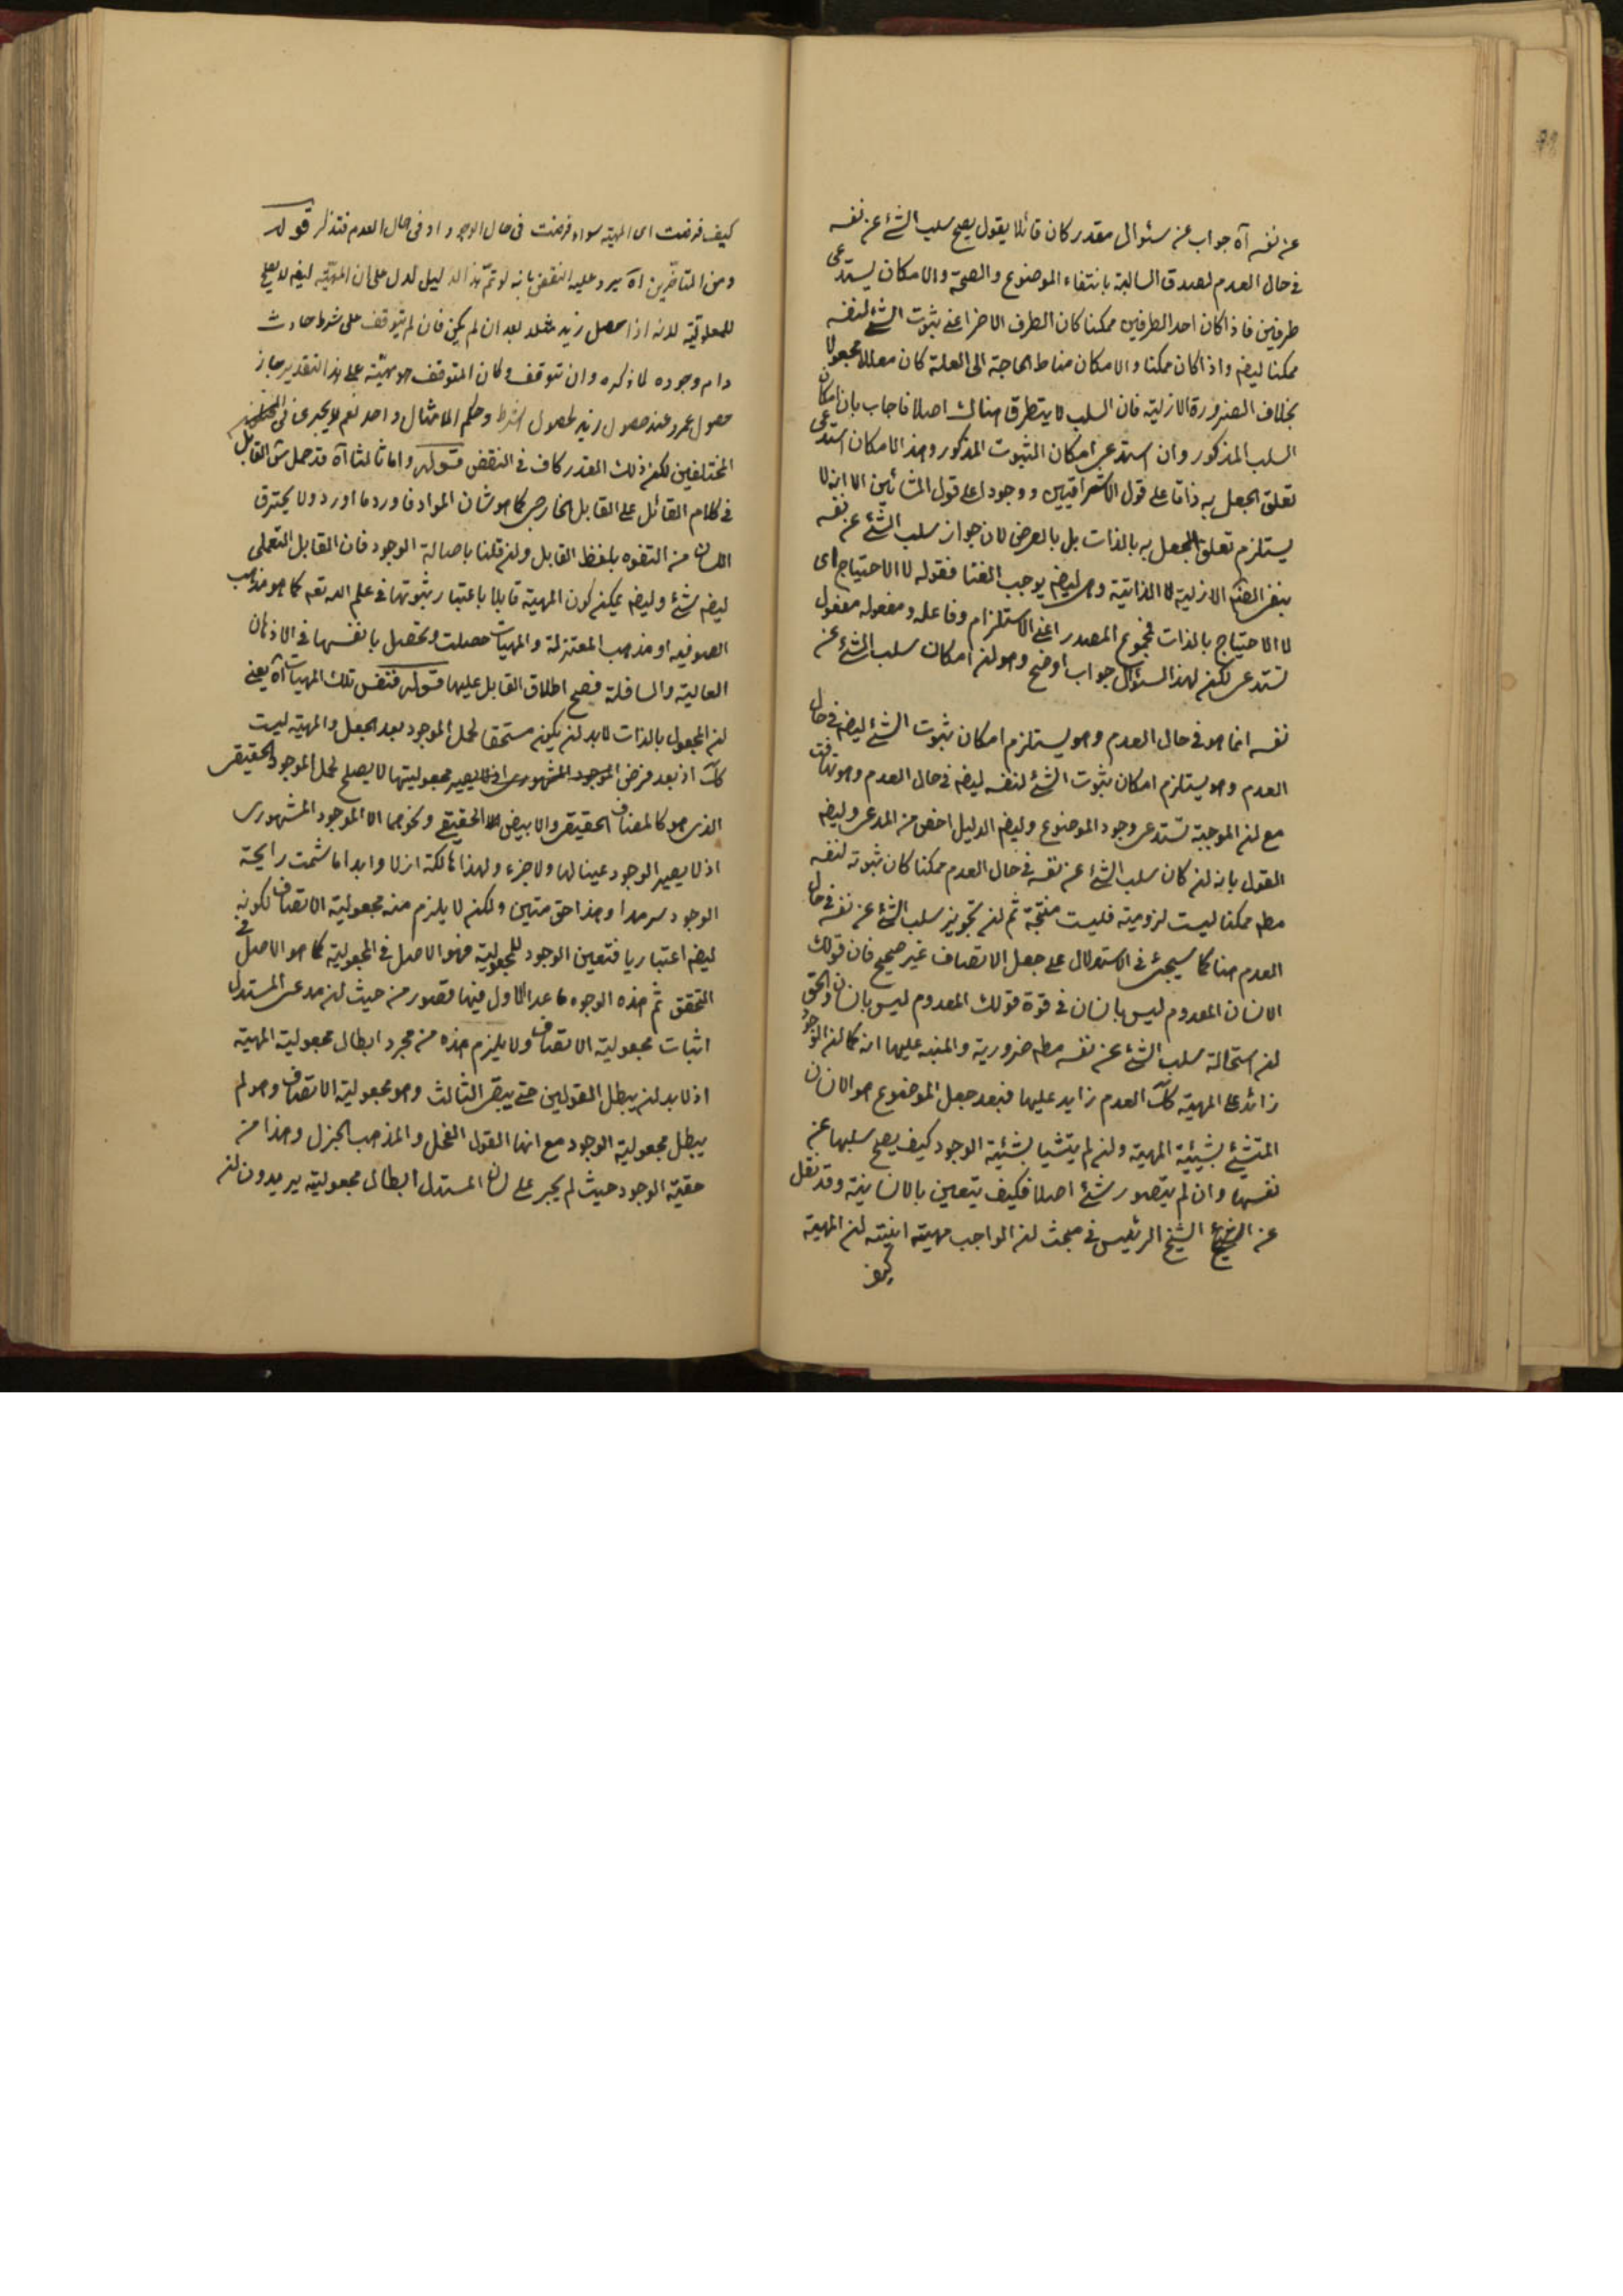 عن نفسه آه جواب عن سئوال مقدر كان قائلا يقول يصح سلب الشئ عن نفسه
فى حال العدم لصدق السالبة بانتفاء الموضوع والصحة والامكان يستدعى
طرفين فاذا كان احد الطرفين ممكنا كان الطرف الاخر اعنى ثبوت الشئ لنفسه
ممكنا ايضا واذا كان ممكنا والامكان مناط الحاجة الى العلة كان معللا مجعولا
بخلاف الضرورة الازلية فان السلب لا يتطرق هناك اصلا فاجاب بان امكان
السلب المذكور وان استدعى امكان الثبوت المذكور وهذا الامكان استدعى
تعلق الجعل به ذاتا على قول الاشراقيين ووجودا على قول المشائين الا انه لا
يستلزم تعلق الجعل به بالذات بل بالعرض لان جواز سلب الشئ عن نفسه
ينفى الازلية لا الذاتية وهى ايضا يوجب الغنا فقوله لا الاحتياج اى
لا الاحتياج بالذات فمجموع المصدر اعنى الاستلزام وفاعله ومفعوله مفعول
تستدعى لكن لهذا السئوال جواب اوضح وهو ان امكان سلب الشئ عن
نفسه انما هو فى حال العدم وهو يستلزم امكان ثبوت الشئ ايضا فى حال
العدم وهو يستلزم امكان ثبوت الشئ لنفسه ايضا فى حال العدم وهو تهافت
مع ان الموجبة تستدعى وجود الموضوع وايضا الدليل اخص من المدعى وايضا
القول بانه ان كان سلب الشئ عن نفسه فى حال العدم ممكنا كان ثبوته لنفسه
مطه ممكنا ليست لزومية فليست منتجة ثم ان تجويز سلب الشئ عن نفسه فى حال
العدم هنا كما سيجئ فى الاستدلال على جعل الاتصاف غير صحيح فان قولك
الانسان المعدوم ليس بانسان فى قوة قولك المعدوم ليس بانسان والحق
ان استحالة سلب الشئ عن نفسه مطه ضرورية والمنبه عليها انه كما ان الوجود
زائد على المهية كك العدم زايد عليها فبعد جعل الموضوع هو الانسان
المتشئ بشيئية المهية وان لم يتشيا بشيئية الوجود كيف يصح سلبها عن
نفسها وان لم يتصور شئ اصلا فكيف يتعين بالانسانية وقد نقل
عن الشيخ الرئيس فى مبحث ان الواجب مهيته انيته ان المهية
كيف
كيف فرضت اى المهية سواء فرضت فى حال الوجود او فى حال العدم فتذكر قوله
ومن المتاخرين آه يرد عليه النقض بانه لو تم هذا الدليل لدل على ان المهية ايضا لا يصلح
للمعلولية لانه اذا حصل زيد مثلا بعد ان لم يكن فان لم يتوقف على شرط حادث
دام وجوده لما ذكره وان توقف وكان المتوقف هو مهيته على هذا التقدير جاز
حصول عمرو عند حصول زيد لحصول الشرط وحكم الامثال واحد نعم لا يجرى فى
المختلفين لكن ذلك القدر كاف فى النقض قوله واما ثالثا آه قد حمل شق القابل
فى كلام القائل على القابل الخارجى كما هو شان المواد فاورد ما اورد ولا يحترق
اللسان من التفوه بلفظ القابل وان قلنا باصالة الوجود فان القابل التعملى
ايضا شئ وايضا يمكن كون المهية قابلا باعتبار ثبوتها فى علم الله تعه كما هو مذهب
الصوفيه او مذهب المعتزلة والمهيات حصلت وتحصل بانفسها فى الاذهان
العالية والسافلة فصح اطلاق القابل عليها قوله فنفس تلك المهيات آه يعنى
ان المجعول بالذات لابد ان يكون مستحقا لحمل الموجود بعد الجعل والمهية ليست
كك اذ بعد فرض مجعوليتها لا يصلح لحمل الموجود الحقيقى
الذى هو كالمضاف الحقيقى والابيض الحقيقى ونحوهما الا الموجود المشهورى
اذ لا يصير الوجود عينا لها ولا جزء ولهذا هالكة ازلا وابدا ما شمت رايحة
الوجود سرمدا وهذا حق متين ولكن لا يلزم منه مجعولية الاتصاف لكونه
ايضا اعتباريا فتعين الوجود للمجعولية فهو الاصل فى المجعولية كما هو الاصل فى
التحقق ثم هذه الوجوه ما عدا الاول فيها قصور من حيث ان مدعى المستدل
اثبات مجعولية الاتصاف ولا يلزم هذه من مجرد ابطال مجعولية المهية
اذ لابد ان يبطل القولين حتى يبقى الثالث وهو مجعولية الاتصاف وهو لم
يبطل مجعولية الوجود مع انها القول الفحل والمذهب الجزل وهذا من
حقية الوجود حيث لم يجر على لسان المستدل ابطال مجعوليته يريدون ان